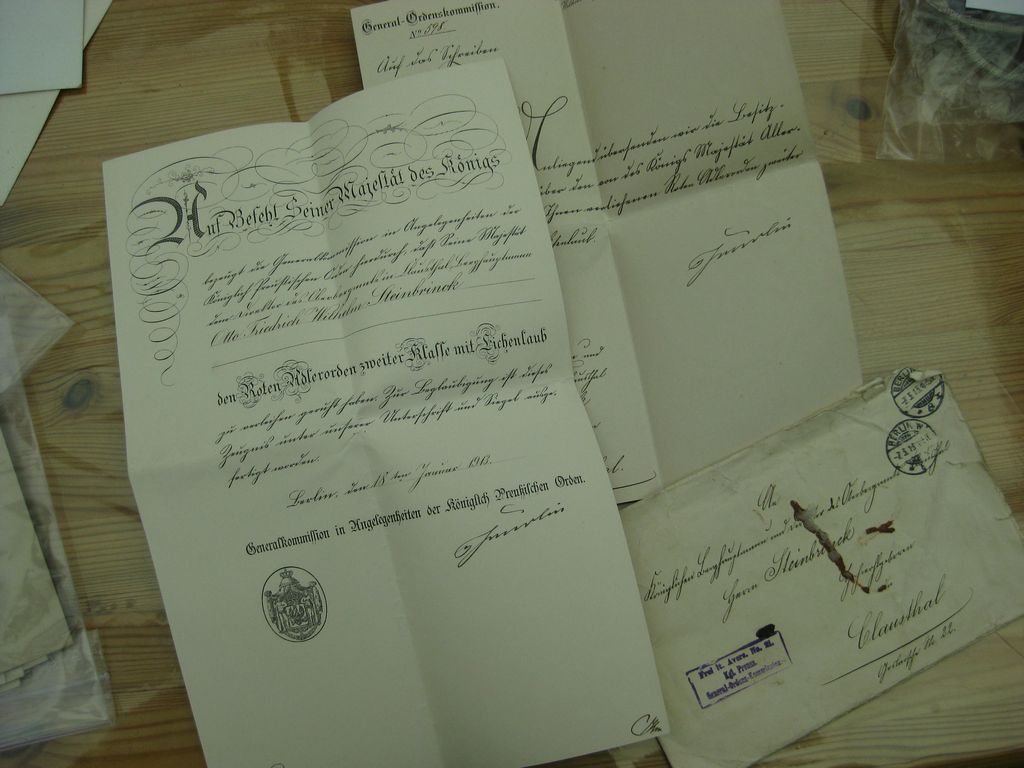 General-Ordenskommission.
No 598
Auf das Schreiben
Anliegend übersenden wir die Besitz-
über den von des Königs Majestät Aller-
Ihnen verliehenen Roten Adlerorden zweiter
Eichenlaub.
und
Auf Befehl Seiner Majestät des Königs
bezeugt die Generalkommission in Angelegenheiten der
Königlich Preußischen Orden hierdurch, daß Seine Majestät
dem Direktor des Oberbergamts in Clausthal, Berghauptmann
Otto Friedrich Wilhelm Steinbrinck
den Roten Adlerorden zweiter Klasse mit Eichenlaub
zu verleihen geruht haben. Zur Beglaubigung ist dieses
Zeugnis unter unserer Unterschrift und Siegel ausge-
fertigt worden.
Berlin, den 18ten Januar 1913.
Generalkommission in Angelegenheiten der Königlich Preußischen Orden.
BERLIN
BERLIN
An
Königlichen Berghauptmann und Direktor des Oberbergamts
Herrn Steinbrinck
Hochwohlgeboren
Clausthal
Frei lt. Avers. No. 21.
Kgl. Preuss.
General-Ordens-Kommission